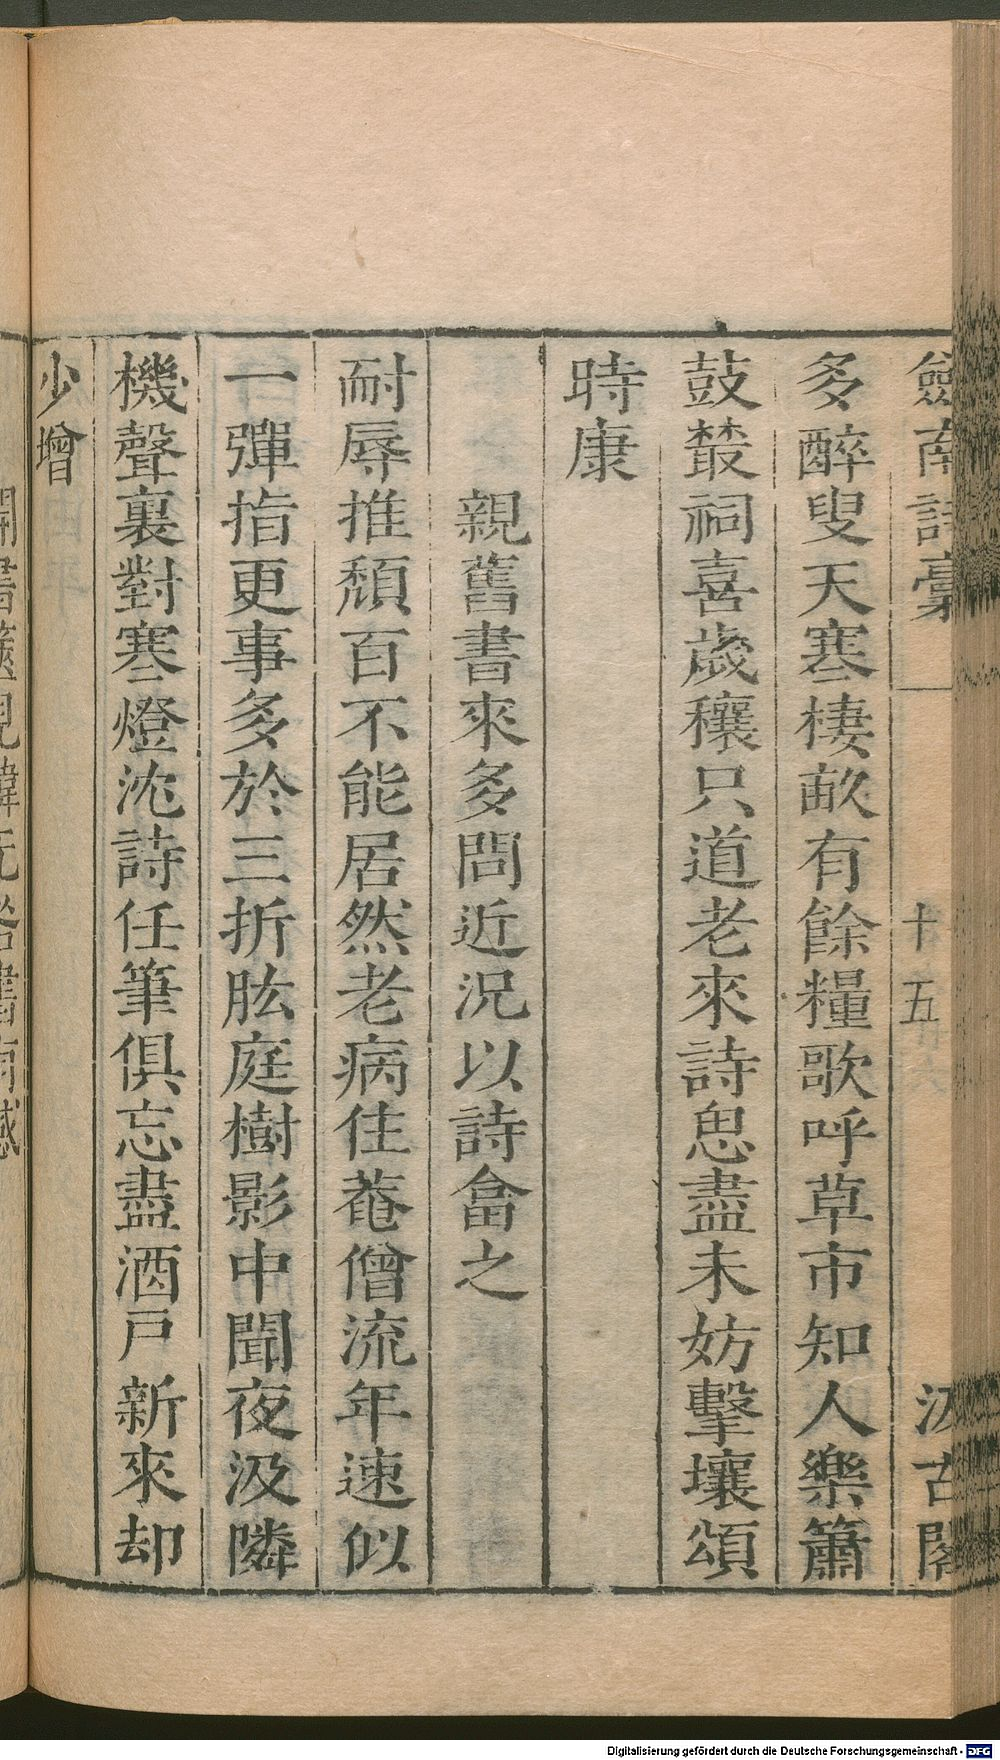 劔南詩稾 十五 汲古閣
多醉叟天寒棲畝有餘糧歌呼草市知人樂簫
鼓叢祠喜歲穰只道老來詩思盡未妨擊壤頌
時康
親舊書來多問近況以詩畣之
耐辱推頽百不能居然老病住菴僧流年速似
一彈指更事多於三折肱庭樹影中聞夜汲隣
機聲裏對寒燈沈詩任筆俱忘盡酒戶新來却
少增
Digitalisierung gefördert durch die Deutsche Forschungsgemeinschaft - DFG